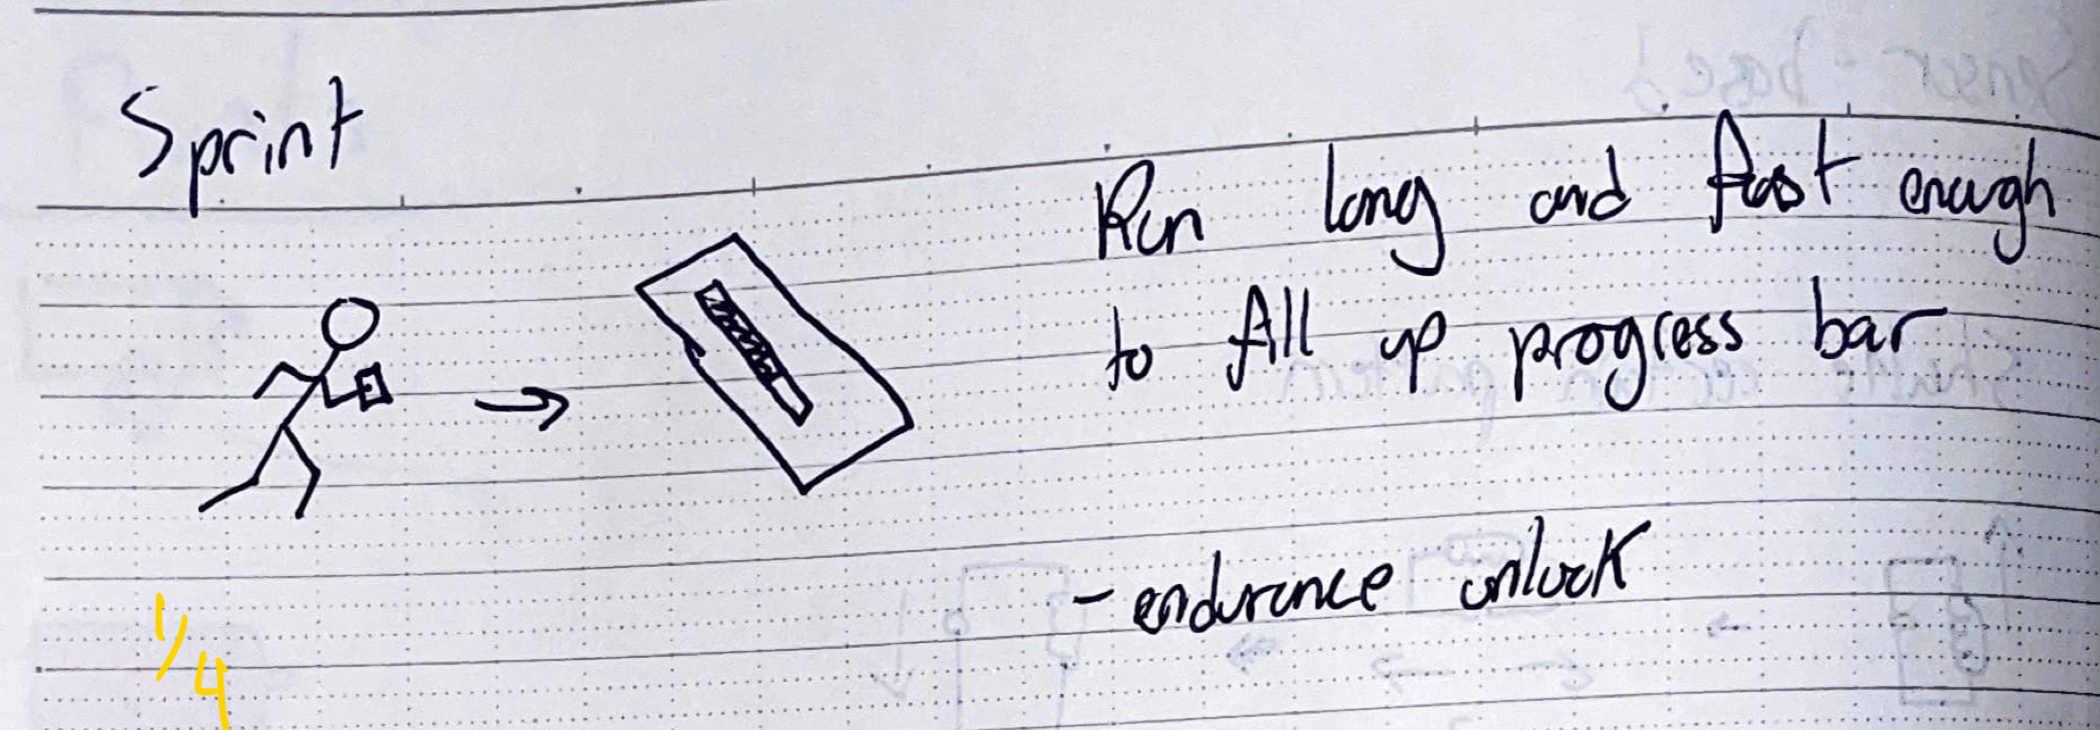 Sprint
Run long and fast enough
to fill up progress bar
- endurance unlock
1/4